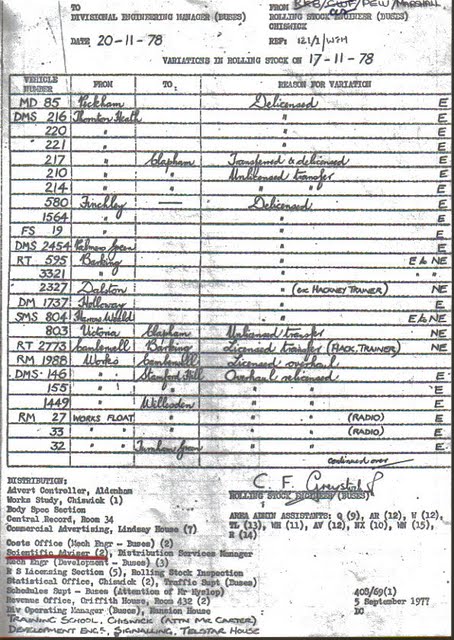 TO FROM
DIVISIONAL ENGINEERING MANAGER (BUSES) ROLLING STOCK ENGINEER (BUSES)
CHISWICK
DATE 20-11-78 REF: 121/1/WPH
VARIATIONS IN ROLLING STOCK ON 17-11-78
VEHICLE NUMBER FROM TO: REASON FOR VARIATION
MD 85 Peckham Delicensed E
DMS 216 Thornton Heath " " E
220 " " E
221 " " E
217 " Clapham Transferred & delicensed E
210 " " Unlicensed transfer E
214 " " " E
580 Finchley — Delicensed E
1564 " " E
FS 19 " " E
DMS 2454 Palmers Green " E
RT 595 Barking " E & NE
3321 " " " "
2327 Dalston " (ex HACKNEY TRAINER) NE
DM 1737 Holloway " E
SMS 804 Harrow Weald " E & NE
803 Victoria Clapham Unlicensed transfer NE
RT 2773 Camberwell Barking Licensed transfer (HACK, TRAINER) NE
RM 1988 Works Camberwell Licensed overhaul
DMS 146 " Stamford Hill Overhaul relicensed E
155 " " " " E
1449 " Willesden " " E
RM 27 WORKS FLOAT " " " (RADIO) E
33 " " " " " (RADIO) E
32 " " Turnham Green " " E
continued over
DISTRIBUTION:
Advert Controller, Aldenham
Works Study, Chiswick (1)
Body Spec Section
Central Record, Room 34
Commercial Advertising, Lindsay House (7)
Costs Office (Mech Engr - Buses) (2)
Scientific Adviser (2), Distribution Services Manager
Mech Engr (Development - Buses) (3)
R S Licensing Section (5), Rolling Stock Inspection
Statistical Office, Chiswick (2), Traffic Supt (Buses)
Schedules Supt - Buses (Attention of Mr Hyslop)
Revenue Office, Griffith House, Room 432 (2)
Div Operating Manager (Buses), Mansion House
TRAINING SCHOOL, CHISWICK (ATTN MR CARTER)
DEVELOPMENT ENG'S, SIGNALLING, TELSTAR HOUSE
C. F.
ROLLING STOCK ENGINEER (BUSES)
AREA ADMIN ASSISTANTS: Q (9), AR (12), W (12),
TL (13), WH (11), AV (12), NX (10), WN (15),
R (14)
408/69(1)
5 September 1977
DO